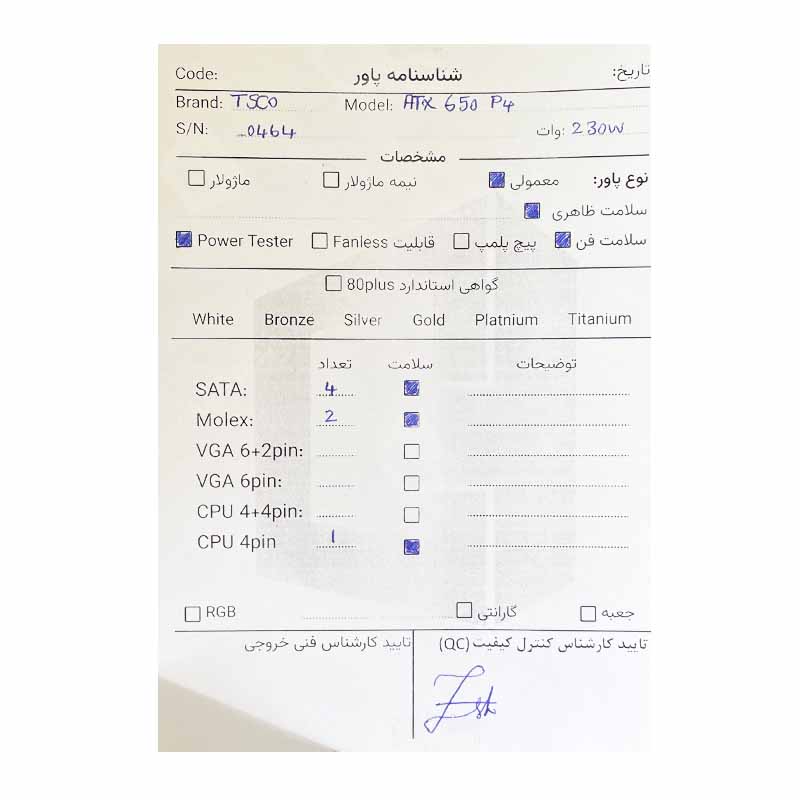 Code: شناسنامه پاور تاریخ:
Brand: TSCO Model: ATX 650 P4
S/N: _0464 وات: 230W
مشخصات
نوع پاور: معمولی نیمه ماژولار ماژولار
سلامت ظاهری
سلامت فن پیچ پلمپ قابلیت Fanless Power Tester
گواهی استاندارد 80plus
White Bronze Silver Gold Platnium Titanium
تعداد سلامت توضیحات
SATA: 4
Molex: 2
VGA 6+2pin:
VGA 6pin:
CPU 4+4pin:
CPU 4pin 1
جعبه گارانتی RGB
تایید کارشناس کنترل کیفیت (QC) تایید کارشناس فنی خروجی